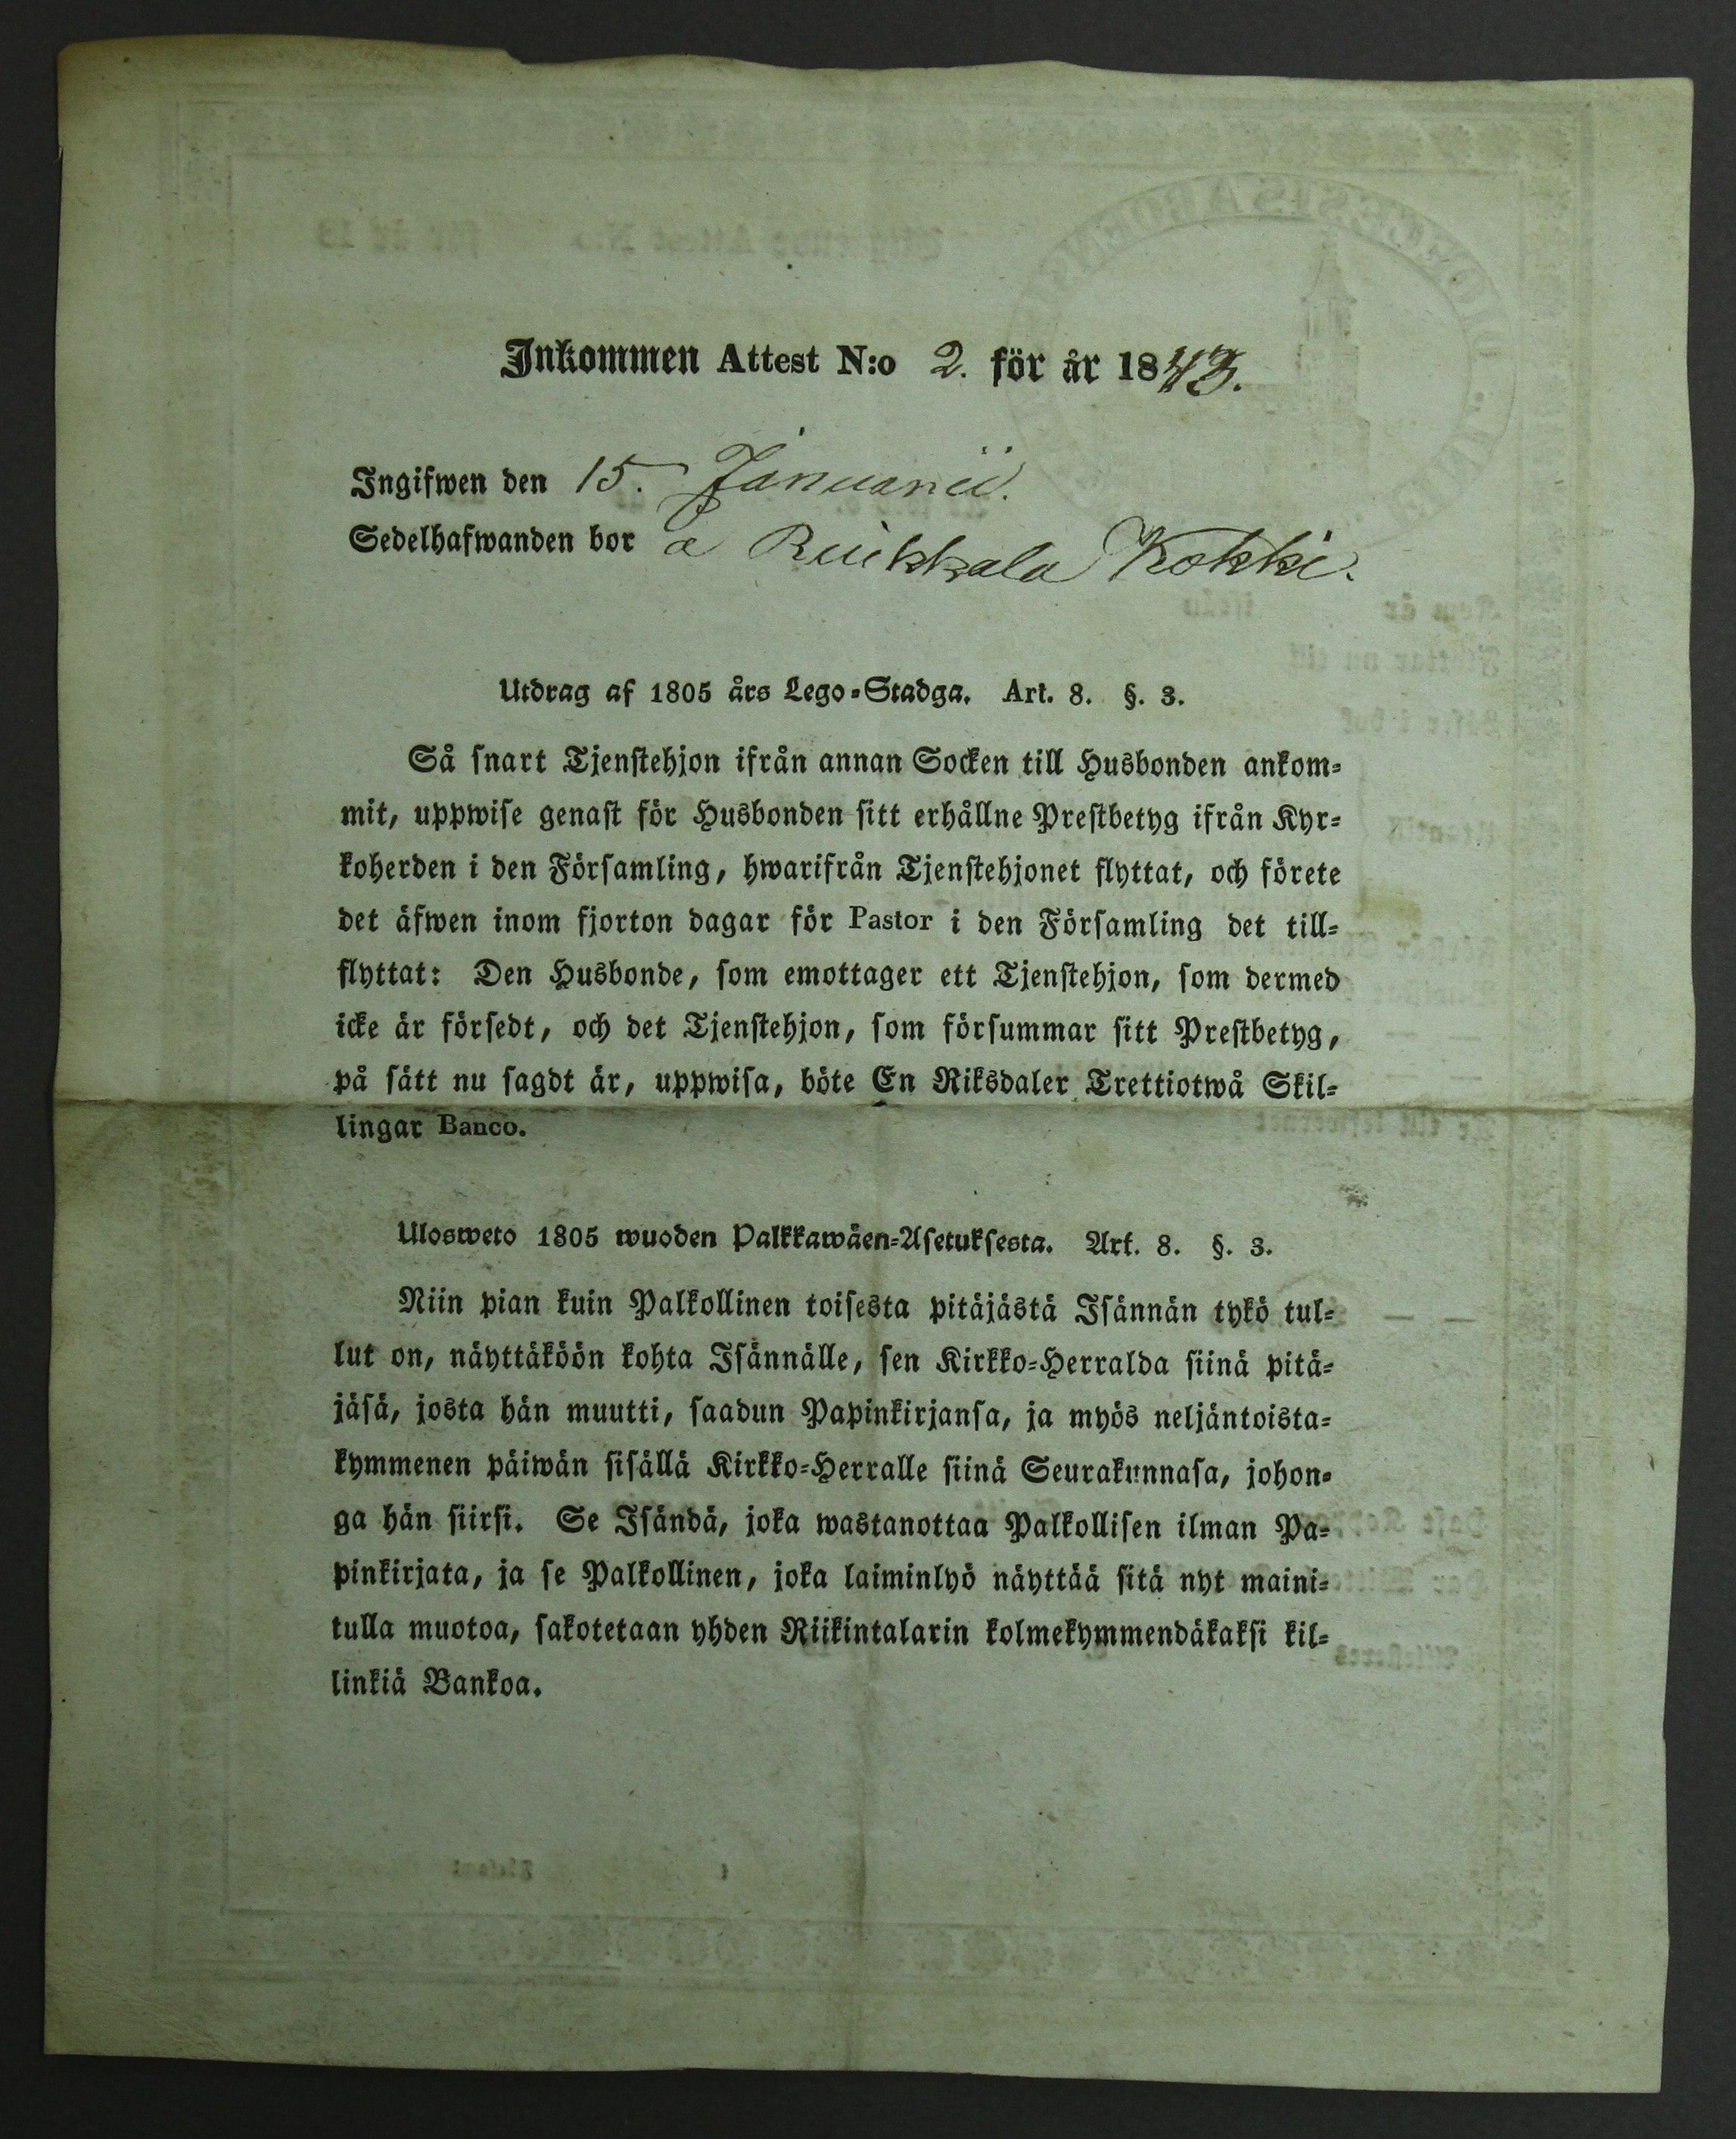 Inkommen Attest N:o 2. för år 1843.
Ingifwen den 15. Januarii.
Sedelhafwanden bor å Ruikkala Kokki.
Utdrag af 1805 års Lego-Stadga. Art. 8. §. 3.
Så snart Tjenstehjon ifrån annan Socken till Husbonden ankom-
mit, uppwise genast för Husbonden sitt erhållne Prestbetyg ifrån Kyr-
koherden i den Församling, hwarifrån Tjenstehjonet flyttat, och förete
det äfwen inom fjorton dagar för Pastor i den Församling det till-
flyttat: Den Husbonde, som emottager ett Tjenstehjon, som dermed
icke är försedt, och det Tjenstehjon, som försummar sitt Prestbetyg,
på sätt nu sagdt är, uppwisa, böte En Riksdaler Trettiotwå Skil-
lingar Banco.
Ulosweto 1805 wuoden Palkkawäen-Asetuksesta. Art. 8. §. 3.
Niin pian kuin Palkollinen toisesta pitäjästä Isännän tykö tul-
lut on, näyttäköön kohta Isännälle, sen Kirkko-Herralda siinä pitä-
jäsä, josta hän muutti, saadun Papinkirjansa, ja myös neljäntoista-
kymmenen päiwän sisällä Kirkko-Herralle siinä Seurakunnasa, johon-
ga hän siirsi. Se Isändä, joka wastanottaa Palkollisen ilman Pa-
pinkirjata, ja se Palkollinen, joka laiminlyö näyttää sitä nyt maini-
tulla muotoa, sakotetaan yhden Riikintalarin kolmekymmendäkaksi kil-
linkiä Bankoa.